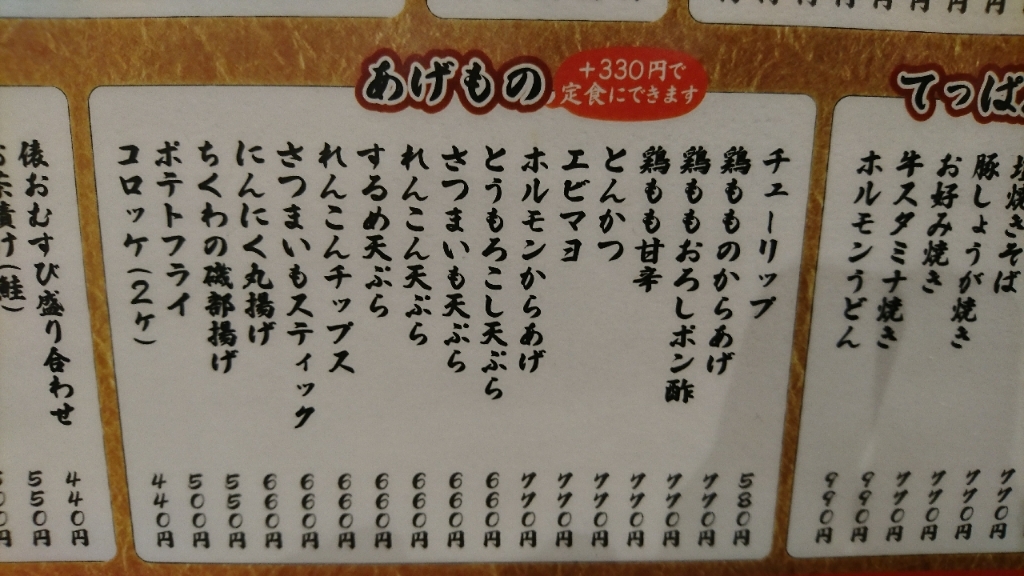 あげもの
+330円で
定食にできます
チューリップ 580円
鶏もものからあげ 770円
鶏ももおろしポン酢 770円
鶏もも甘辛 770円
とんかつ 770円
エビマヨ 770円
ホルモンからあげ 770円
とうもろこし天ぷら 660円
さつまいも天ぷら 660円
れんこん天ぷら 660円
するめ天ぷら 660円
れんこんチップス 660円
さつまいもスティック 660円
にんにく丸揚げ 660円
ちくわの磯部揚げ 550円
ポテトフライ 500円
コロッケ(2ケ) 440円
てっぱ
焼きそば 770円
豚しょうが焼き 770円
お好み焼き 770円
牛スタミナ焼き 990円
ホルモンうどん 990円
俵おむすび盛り合わせ 440円
お茶漬け(鮭) 550円